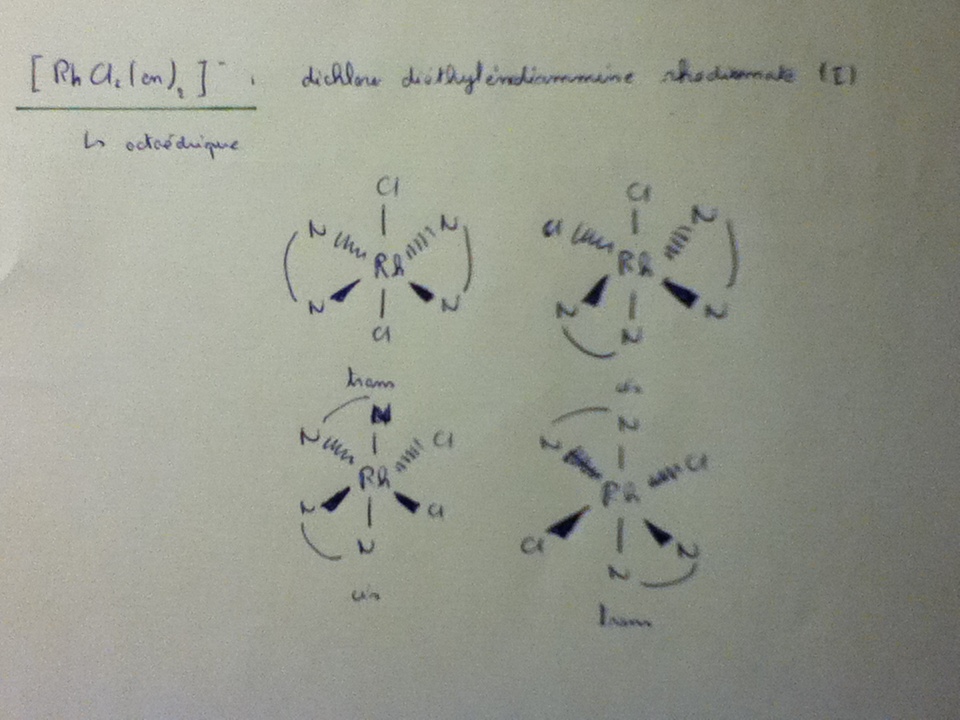 [RhCl₂(en)₂]⁻ : dichloro diéthylèndiammine rhodiumate (I)
↳ octaédrique
Cl Cl
N N Cl N
Rh Rh
N N N N
Cl N
trans cis
N N
N Cl N Cl
Rh Rh
N Cl Cl N
N N
cis trans